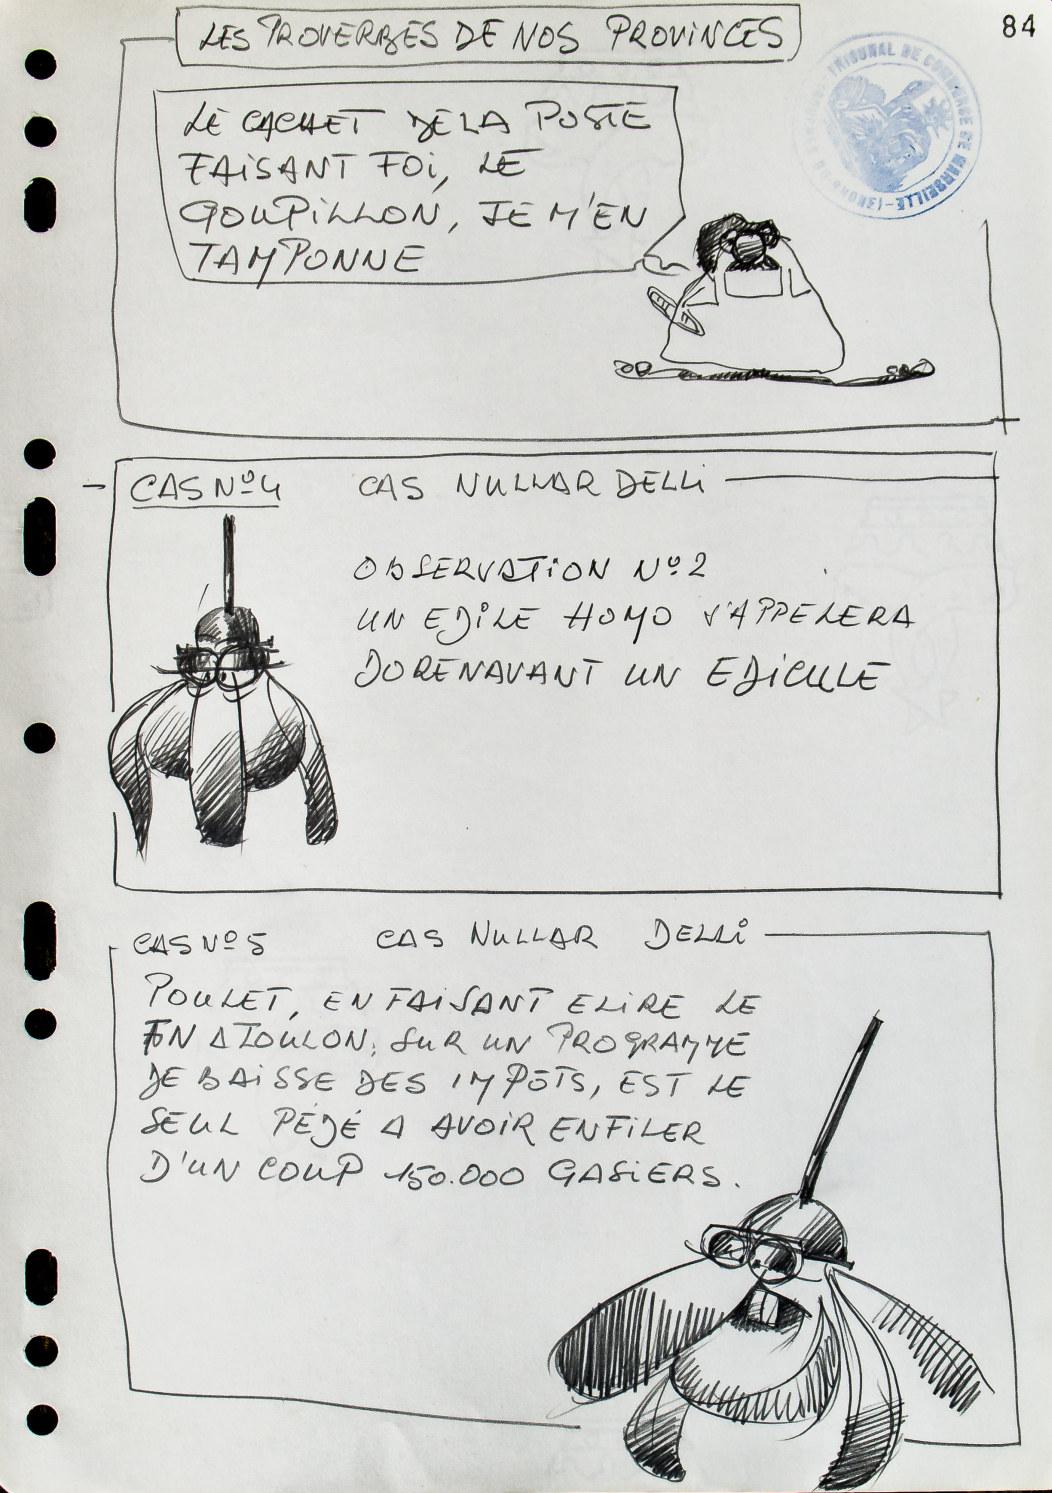 LES PROVERBES DE NOS PROVINCES
84
TRIBUNAL DE COMMERCE DE MARSEILLE
LE CACHET DE LA POSTE
FAISANT FOI, LE
GOUPILLON, JE M'EN
TAMPONNE
CAS Nº4 CAS NULLAR DELLI
OBSERVATION Nº2
UN EDILE HOMO S'APPELERA
DORENAVANT UN EDICULE
CAS Nº5 CAS NULLAR DELLI
POULET, EN FAISANT ELIRE LE
FN A TOULON, SUR UN PROGRAMME
DE BAISSE DES IMPOTS, EST LE
SEUL PÉDÉ A AVOIR ENFILER
D'UN COUP 150.000 GASIERS.